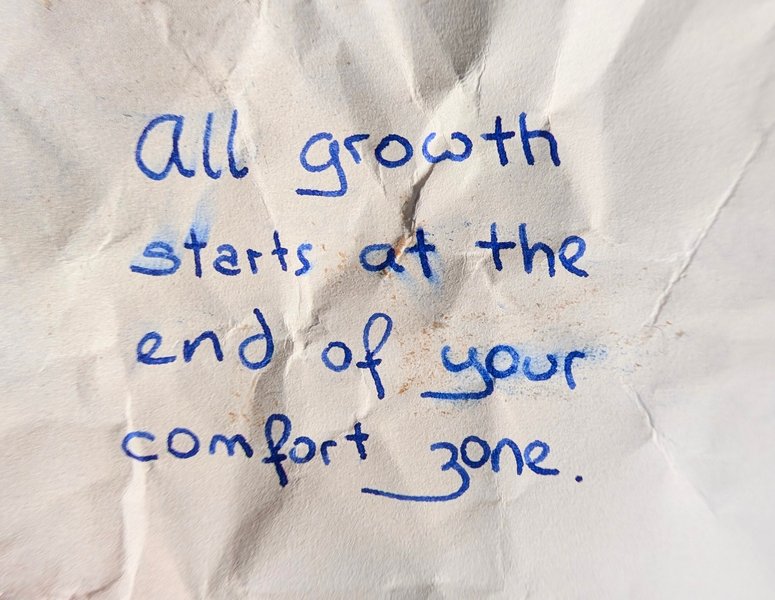 All growth
starts at the
end of your
comfort zone.